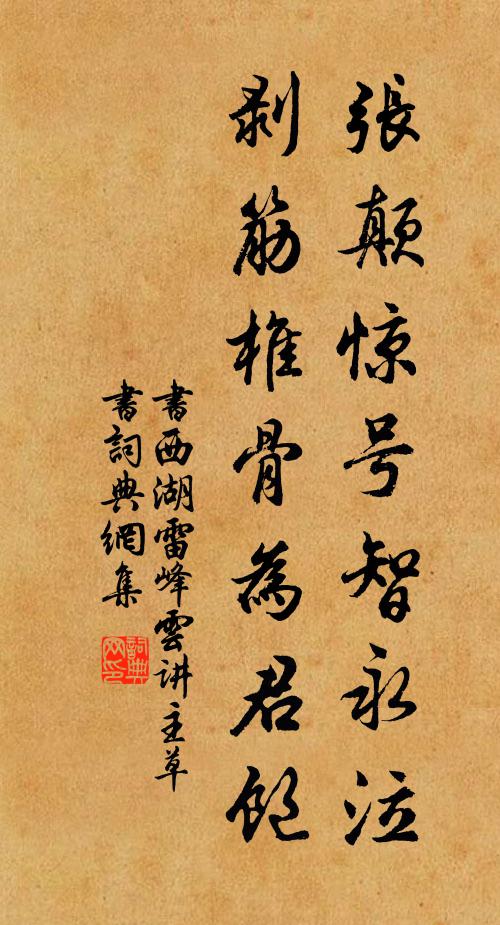 張顛惊号智永泣
剥筋椎骨為君飽
書西湖雷峰雲讲主草
書詞典網集
詞典
网印